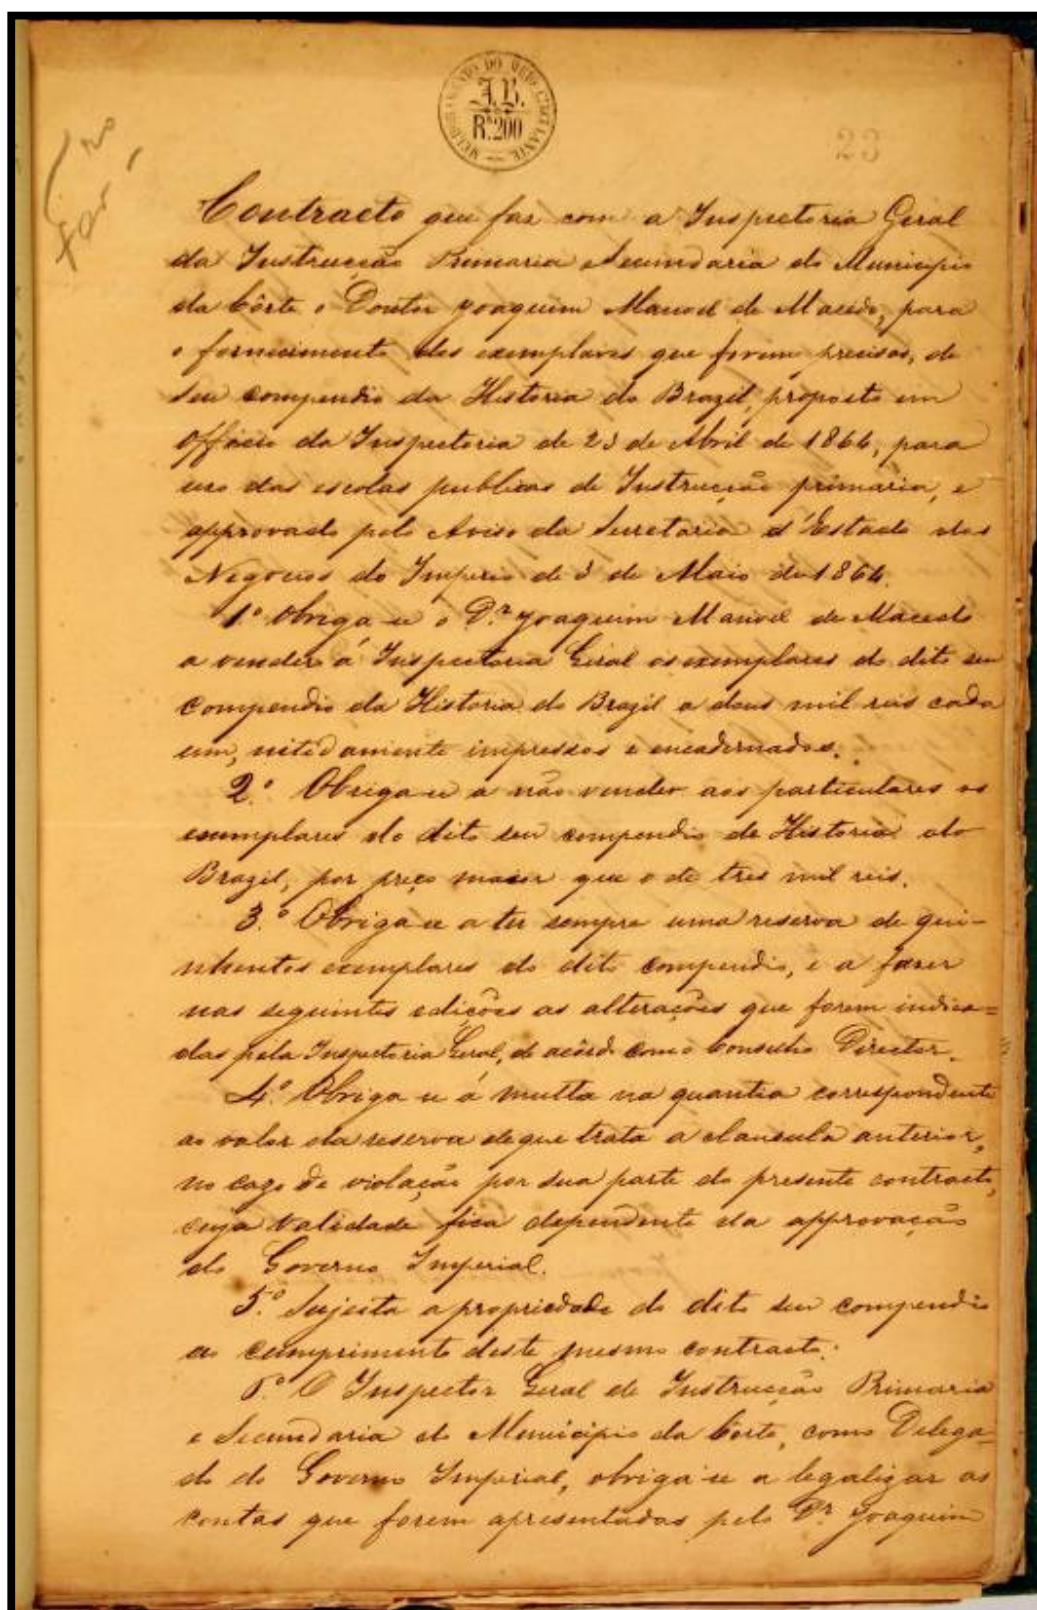 J.B.
Rs 200
23
Contracto que faz com a Inspectoria Geral
da Instrucção Primaria e Secundaria do Municipio
da Côrte o Doutor Joaquim Manoel de Macedo, para
o fornecimento dos exemplares que forem precisos, de
seu compendio da Historia do Brazil, proposto em
officio da Inspectoria de 23 de Abril de 1864, para
uso das escolas publicas de Instrucção primaria, e
approvado pelo Aviso da Secretaria d'Estado dos
Negocios do Imperio de 3 de Maio de 1864.
1.º Obriga-se o Dr. Joaquim Manoel de Macedo
a vender á Inspectoria Geral os exemplares do dito seu
compendio da Historia do Brazil a dous mil reis cada
um, nitidamente impressos e encadernados.
2.º Obriga-se a não vender aos particulares os
exemplares do dito seu compendio de Historia do
Brazil, por preço maior que o de tres mil reis.
3.º Obriga-se a ter sempre uma reserva de qui-
nhentos exemplares do dito compendio, e a fazer
nas seguintes edições as alterações que forem indica=
das pela Inspectoria Geral, de acôrdo com o Conselho Director.
4.º Obriga-se á multa na quantia correspondente
ao valor da reserva de que trata a clausula anterior,
no cazo de violação por sua parte do presente contracto,
cuja validade fica dependente da approvação
do Governo Imperial.
5.º Sujeita a propriedade do dito seu compendio
ao cumprimento deste mesmo contracto.
6.º O Inspector Geral de Instrucção Primaria
e Secundaria do Municipio da Corte, como Delega=
do do Governo Imperial, obriga-se a legalizar as
contas que forem apresentadas pelo Dr. Joaquim